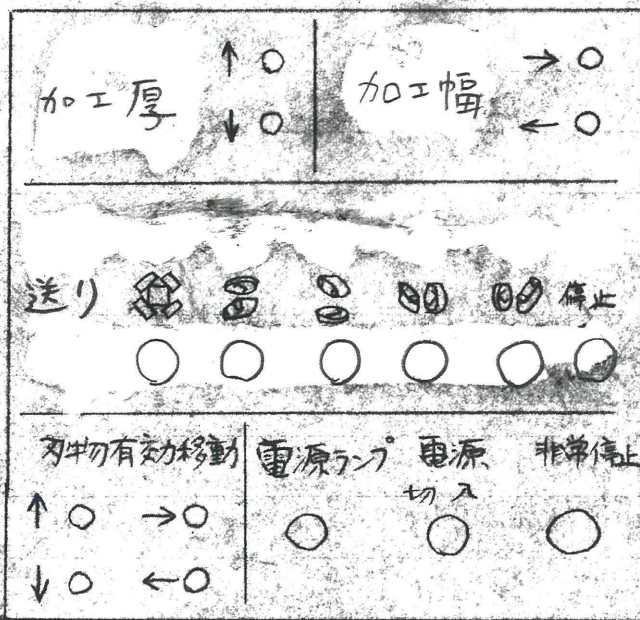 加工厚 ↑
↓
加工幅 →
←
送り 停止
刃物有効移動
↑ →
↓ ←
電源ランプ 電源 非常停止
切 入